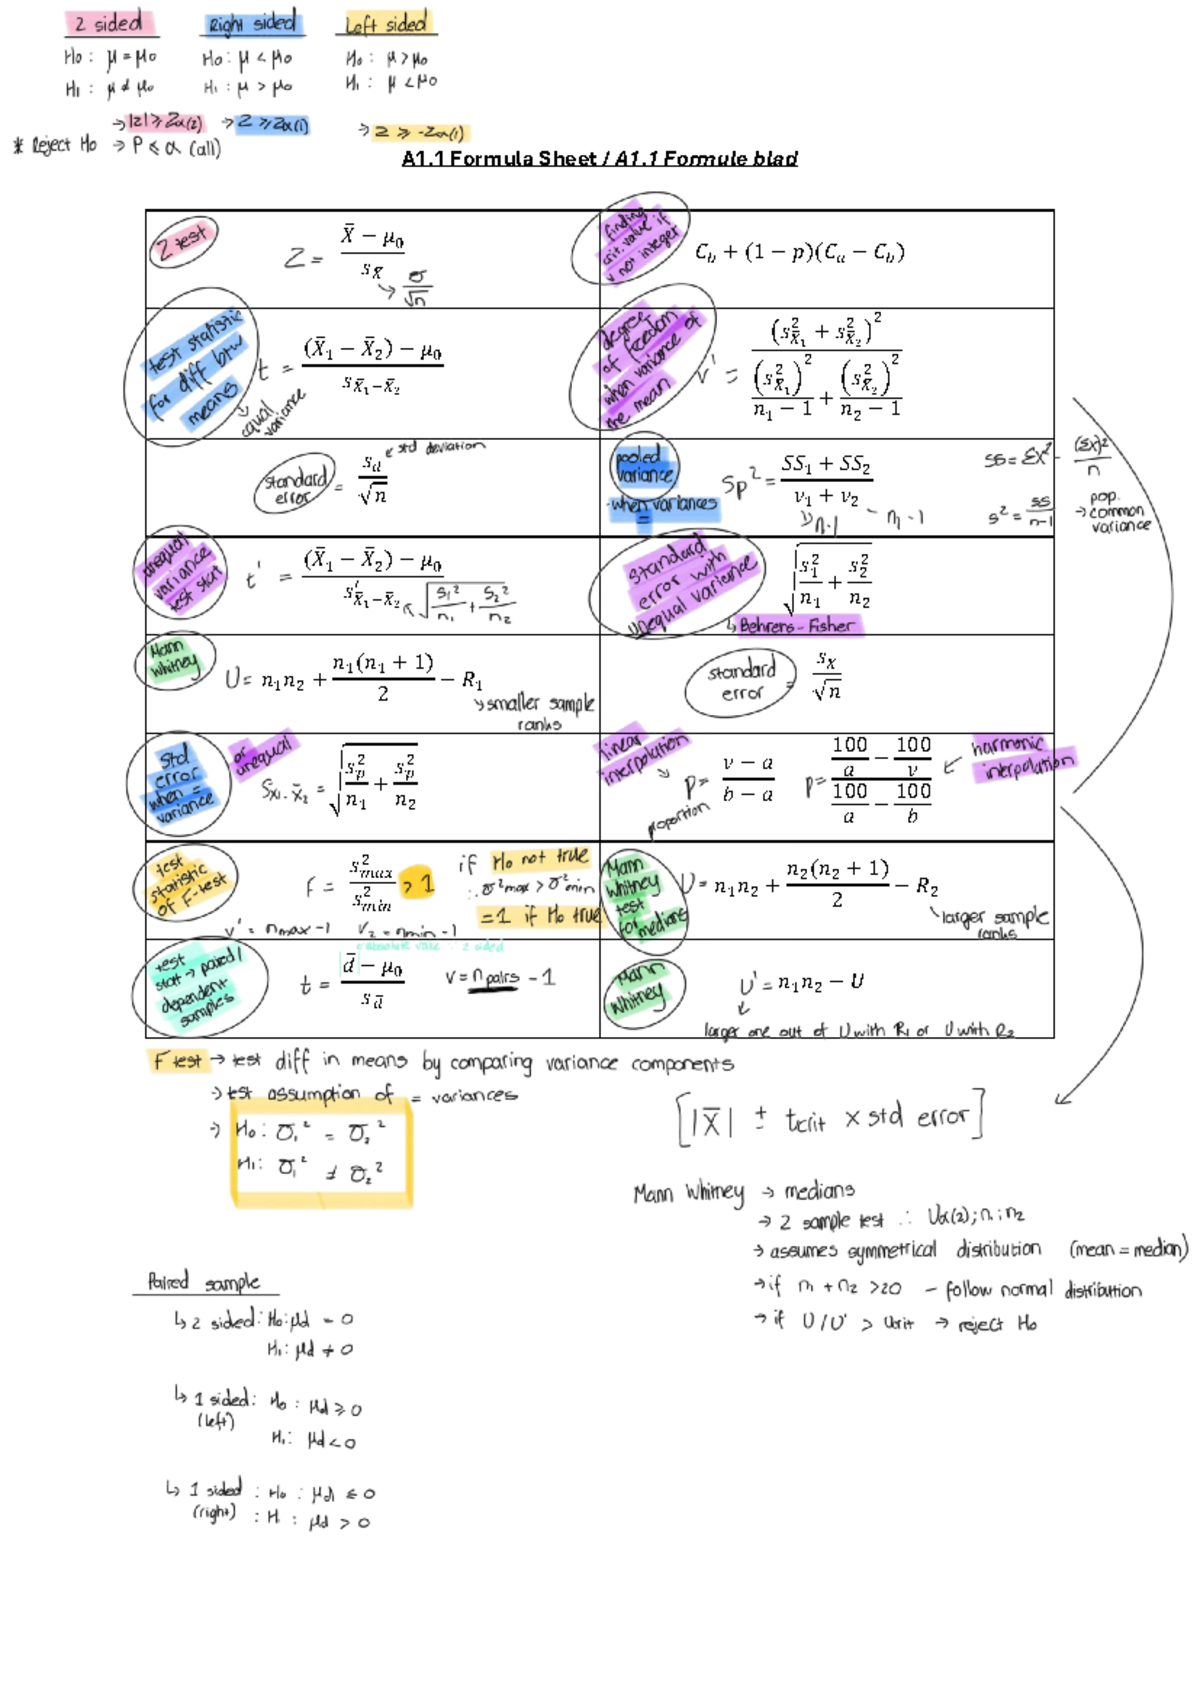 2 sided Right sided Left sided
Ho : μ = μo Ho : μ < μo Ho : μ > μo
H1 : μ ≠ μo H1 : μ > μo H1 : μ < μo
→ |z| ≥ Zα(2) → Z ≥ Zα(1) → Z ≥ -Zα(1)
* Reject Ho → P ≤ α (all)
A1.1 Formula Sheet / A1.1 Formule blad
Z test
Z = (X̄ − μ₀) / s_X̄
→ σ/√n
finding crit. value if v not integer
C_b + (1 − p)(C_a − C_b)
test statistic for diff btw means
→ equal variance
t = ((X̄₁ − X̄₂) − μ₀) / s_X̄₁−X̄₂
degree of freedom when variance of the mean
v' = (s²_X̄₁ + s²_X̄₂)² / ((s²_X̄₁)²/(n₁ − 1) + (s²_X̄₂)²/(n₂ − 1))
standard error = s_d/√n
std deviation
pooled variance
- when variances =
Sp² = (SS₁ + SS₂) / (ν₁ + ν₂)
n-1 - n₁ - 1
SS = Σx² - (Σx)²/n
s² = SS/n-1 → pop. common variance
unequal variance test stat
t' = ((X̄₁ − X̄₂) − μ₀) / s'_X̄₁−X̄₂
√(S₁²/n₁ + S₂²/n₂)
Standard error with unequal varience
√(s₁²/n₁ + s₂²/n₂)
↳ Behrers - Fisher
Mann Whitney
U = n₁n₂ + n₁(n₁ + 1)/2 − R₁
→ smaller sample ranks
standard error = s_X/√n
std error when = variance
or unequal
S_x̄₁-x̄₂ = √(s²_p/n₁ + s²_p/n₂)
linear interpolation
P = (ν − a)/(b − a)
proportion
p = (100/a − 100/ν) / (100/a − 100/b)
harmonic interpolation
test statistic of F-test
F = s²_max / s²_min > 1
if Ho not true
∴ σ²max > σ²min
= 1 if Ho true
v' = nmax - 1 V₂ = nmin - 1
Mann Whitney test for medians
U = n₁n₂ + n₂(n₂ + 1)/2 − R₂
larger sample ranks
absolute value ∵ 2 sided
test stat → paired / dependent samples
t = (d̄ − μ₀) / s_d̄
v = n pairs - 1
Mann Whitney
U' = n₁n₂ − U
larger one out of U with R1 or U with R2
F test → test diff in means by comparing variance components
→ test assumption of = variances
→ Ho : σ₁² = σ₂²
H1 : σ₁² ≠ σ₂²
[ |X̄| ± tcrit x std error ]
Mann Whitney → medians
→ 2 sample test ∴ Uα(2); n₁; n2
→ assumes symmetrical distribution (mean = median)
→ if n1 + n2 > 20 - follow normal distribution
→ if U / U' > Ucrit → reject Ho
Paired sample
↳ 2 sided : Ho : μd = 0
H1 : μd ≠ 0
↳ 1 sided : Ho : μd ≥ 0
(left)
H1 : μd < 0
↳ 1 sided : Ho : μd ≤ 0
(right) : H1 : μd > 0